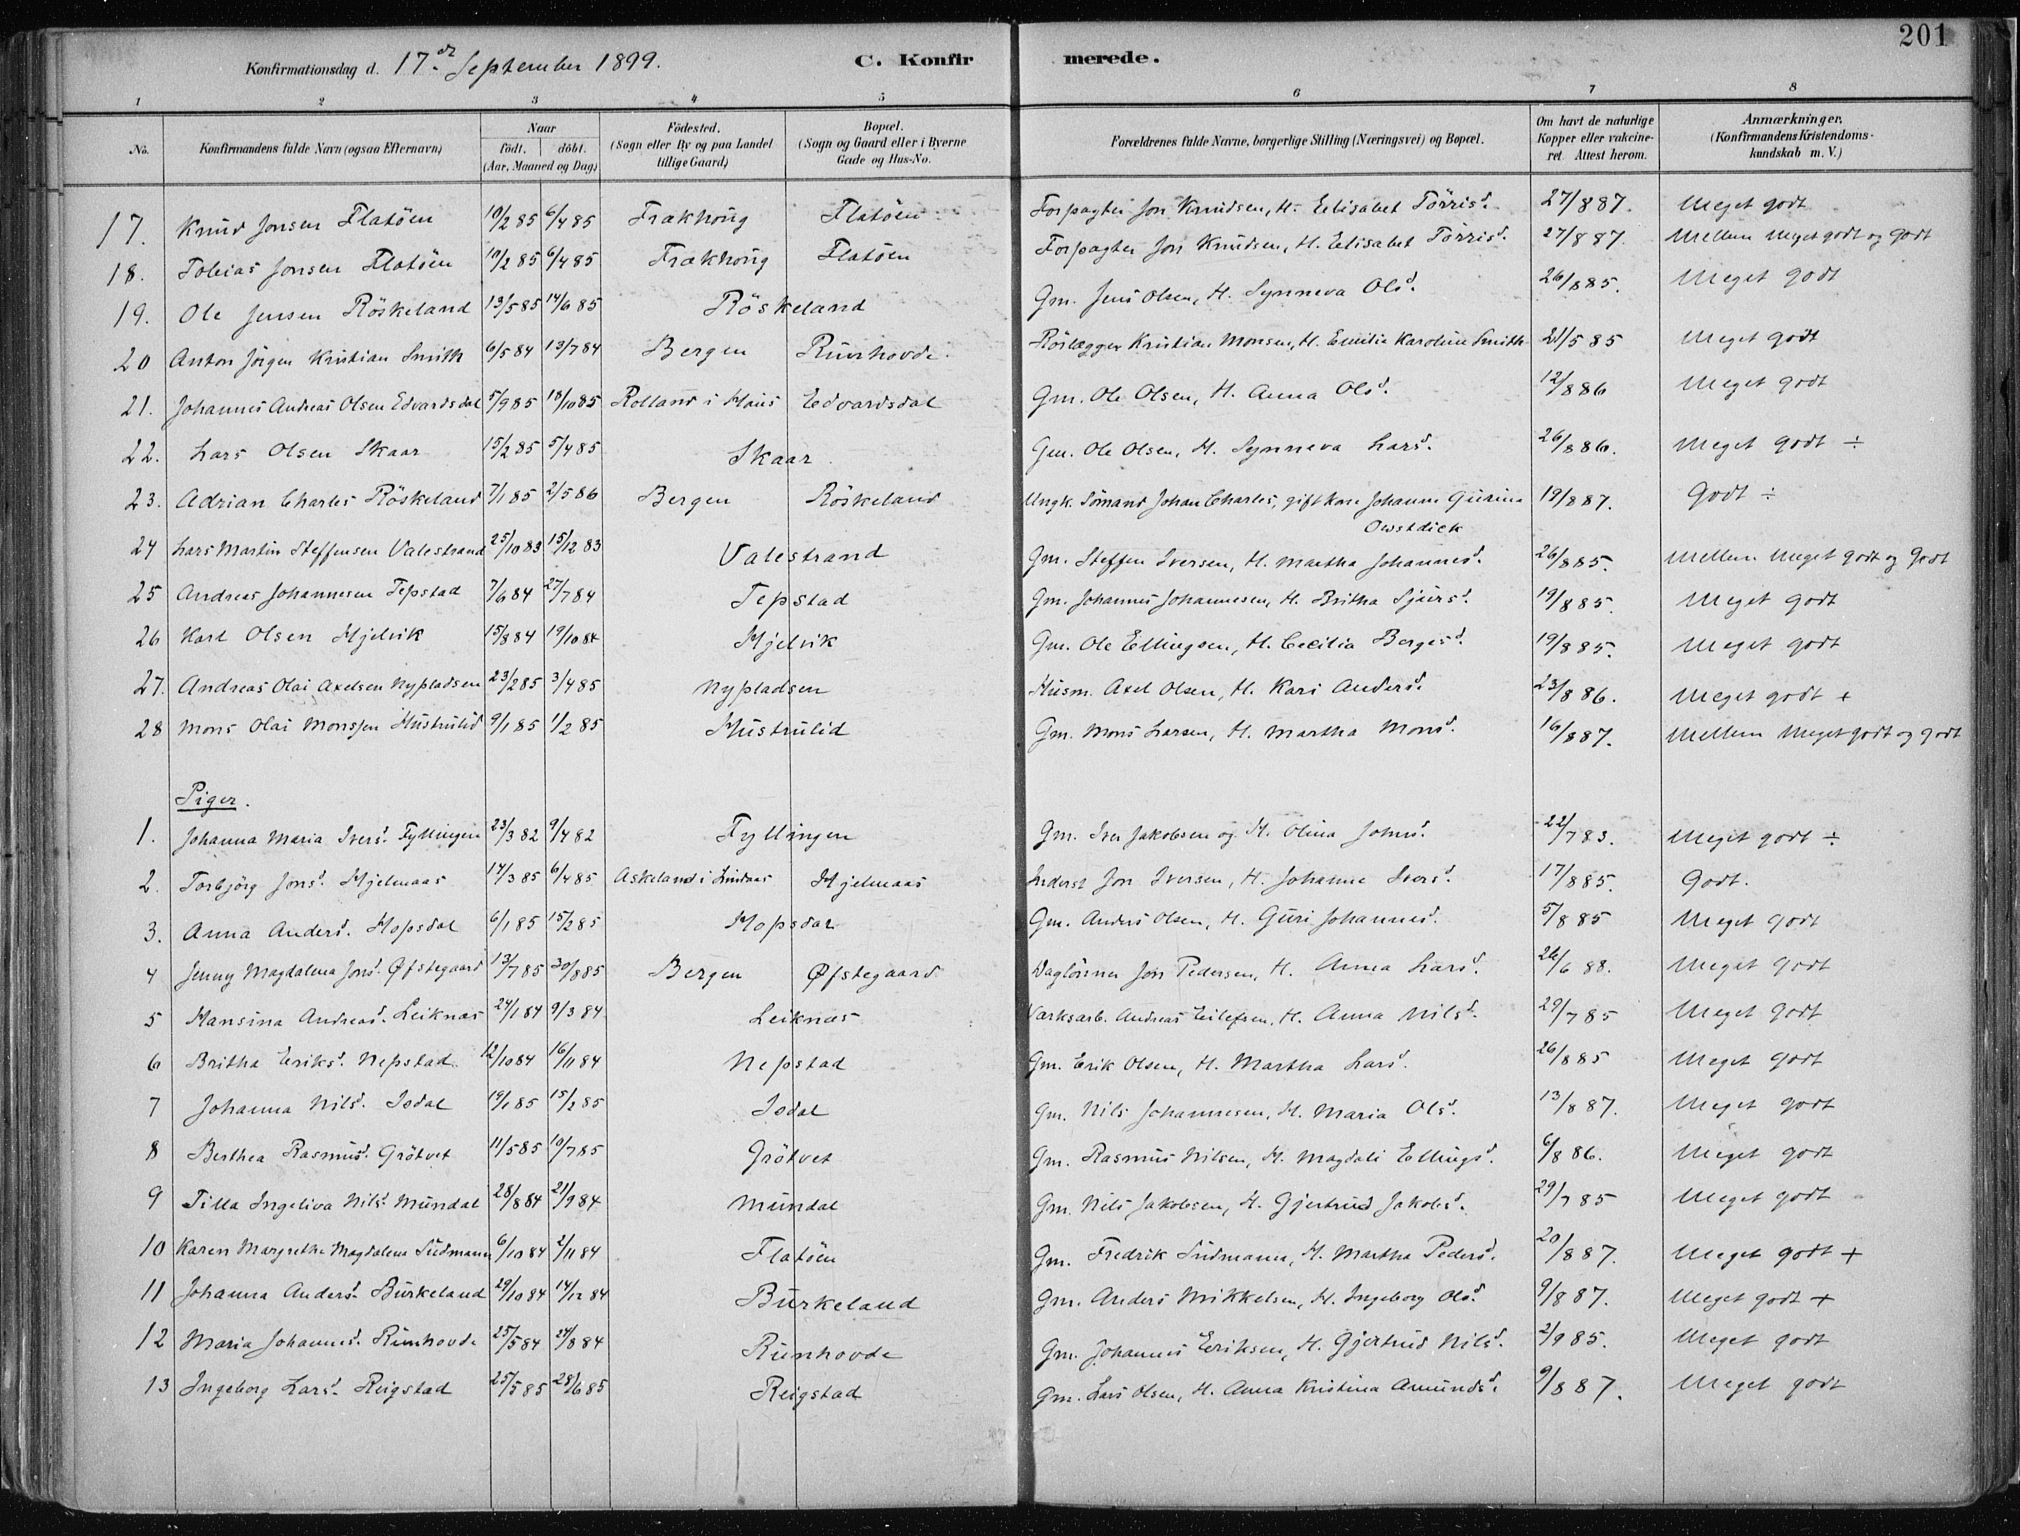 201
Konfirmationsdag d. 17de September 1899. C. Konfirmerede.
1 2 3 4 5 6 7 8
No. Konfirmandens fulde Navn (ogsaa Efternavn) Naar født. døbt. (Aar, Maaned og Dag) Fødested. (Sogn eller By og paa Landet tillige Gaard) Bopæl. (Sogn og Gaard eller i Byerne Gade og Hus-No. Forældrenes fulde Navne, borgerlige Stilling (Næringsvei) og Bopæl. Om havt de naturlige Kopper eller vakcineret. Attest herom. Anmærkninger. (Konfirmandens Kristendomskundskab m. V.)
17. Knud Jonsen Flatöen 10/2 85 6/4 85 Frækhoug Flatöen Forpagter Jon Knudsen, H. Elisabet Törrisd. 27/8 87. Meget godt
18. Tobias Jonsen Flatöen 10/2 85 6/4 85 Frækhoug Flatöen Forpagter Jon Knudsen, H. Elisabet Törrisd. 27/8 87. Mellem Meget godt og godt
19. Ole Jensen Röskeland 13/5 85 14/6 85 Röskeland Gm. Jens Olsen, H. Synneva Olsd. 26/8 85. Meget godt
20 Anton Jörgen Kristian Smith 6/5 84 13/7 84 Bergen Runhovde. Rörlægger Kristian Monsen, H. Emilie Karoline Smith 21/5 85 Meget godt
21. Johannes Andreas Olsen Edvardsdal 5/9 85 18/10 85 Rolland i Haus Edvardsdal Gm. Ole Olsen, H. Anna Olsd. 12/8 86 Meget godt
22. Lars Olsen Skaar 15/2 85 5/4 85 Skaar Gm. Ole Olsen, H. Synneva Larsd. 26/8 86. Meget godt ÷
23. Adrian Charles Röskeland 7/1 85 2/5 86 Bergen Röskeland Ungk. Sömand Johan Charles, gift Kone Johanne Gurina Owstdiek 19/8 87. Godt ÷
24 Lars Martin Steffensen Valestrand 25/10 83 15/12 83 Valestrand Gm. Steffen Iversen, H. Martha Johannesd. 26/8 85. Mellem Meget godt og Godt
25 Andreas Johannesen Tepstad 7/6 84 27/7 84 Tepstad Gm. Johannes Johannesen, H. Britha Sjursd. 19/8 85. Meget godt
26 Karl Olsen Hjelvik 15/8 84 19/10 84 Hjelvik Gm. Ole Ellingsen, H. Cecilia Bergesd. 19/8 85. Meget godt
27. Andreas Olai Axelsen Nypladsen 23/2 85 3/4 85 Nypladsen Husm. Axel Olsen, H. Kari Andersd. 23/8 86. Meget godt +
28 Mons Olai Monssen Hustrulid 9/1 85 1/2 85 Hustrulid Gm. Mons Larsen, H. Martha Monsd. 16/8 87. Mellem Meget godt og godt
Piger.
1. Johanna Maria Iversd. Fyllingen 23/3 82 9/4 82 Fyllingen Gm. Iver Jakobsen og H. Olina Johnsd. 22/7 83. Meget godt ÷
2. Torbjörg Jonsd. Hjelmaas 14/3 85 6/4 85 Askeland i Lindaas Hjelmaas Inderst Jon Iversen, H. Johanne Iversd. 17/8 85. Godt.
3. Anna Andersd. Hopsdal 6/1 85 15/2 85 Hopsdal Gm. Anders Olsen, H. Guri Johannesd. 5/8 85 Meget Godt
4 Jenny Magdalena Jonsd. Øfstegaard 13/7 85 30/8 85 Bergen Øfstegaard Daglönner Jon Pedersen, H. Anna Larsd. 26/6 88. Meget godt
5 Hansina Andreasd. Leiknæs 24/1 84 9/3 84 Leiknæs Værksarb. Andreas Eilefsen, H. Anna Nilsd. 29/7 85 Meget godt
6 Britha Eriksd. Nepstad 12/10 84 16/11 84 Nepstad Gm. Erik Olsen, H. Martha Larsd. 26/8 85 Meget godt
7 Johanna Nilsd. Isdal 19/1 85 15/2 85 Isdal Gm. Nils Johannesen, H. Maria Olsd. 13/8 87. Meget godt
8 Berthea Rasmusd. Grötvet 11/5 85 10/7 85 Grötvet Gm. Rasmus Nilsen, H. Magdali Ellingsd. 6/8 86. Meget godt
9 Tilla Ingeliva Nilsd. Mundal 28/8 84 21/9 84 Mundal Gm. Nils Jakobsen, H. Gjertrud Jakobsd. 29/7 85 Meget godt
10 Karen Margrethe Magdalena Südmann 6/10 84 2/11 84 Flatöen Gm. Fredrik Südmann, H. Martha Pedersd. 20/8 87. Meget godt +
11 Johanna Andersd. Burkeland 29/10 84 14/12 84 Burkeland Gm. Anders Mikkelsen, H. Ingeborg Olsd. 9/8 87. Meget godt +
12 Maria Johannesd. Runhovde 25/5 84 24/8 84 Runhovde Gm. Johannes Eriksen, H. Gjertrud Nilsd. 2/9 85. Meget godt
13 Ingeborg Larsd. Reigstad 25/5 85 28/6 85 Reigstad Gm. Lars Olsen, H. Anna Kristina Amundsd. 9/8 87. Meget godt